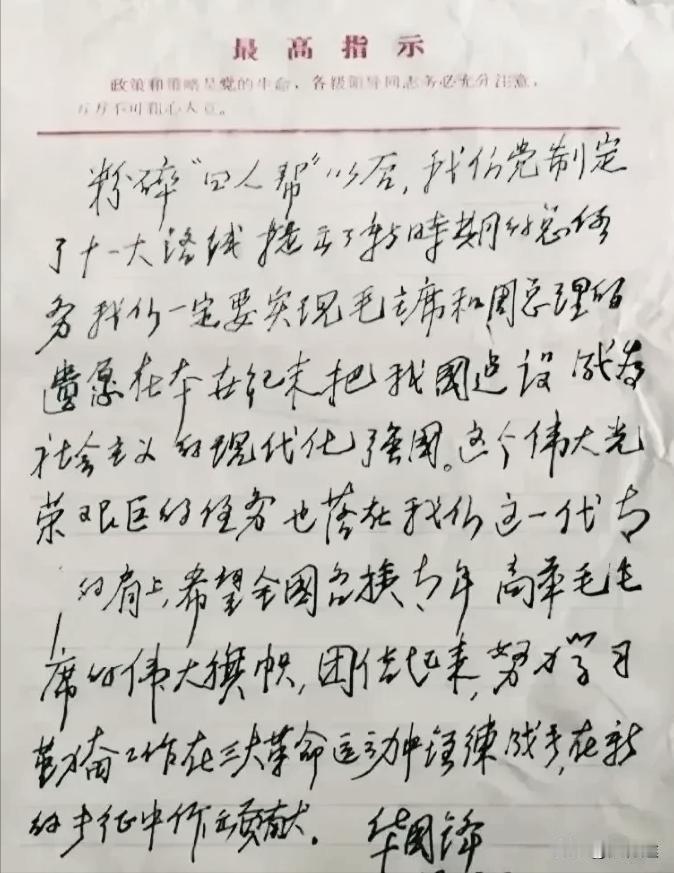 最高指示
政策和策略是党的生命，各级领导同志务必充分注意，
万万不可粗心大意。
粉碎“四人帮”以后，我们党制定
了十一大路线提出了新時期的总任
务我们一定要实现毛主席和周总理的
遗愿在本世纪末把我國建设成为
社会主义的现代化强國。这个伟大光
荣艰巨的任务也落在我们这一代青
的肩上，希望全國各族青年高举毛主
席的伟大旗帜，团结起来，努力学习
勤奋工作在三大革命运动中锤練成长，在新
的长征中作出贡献。
华國锋